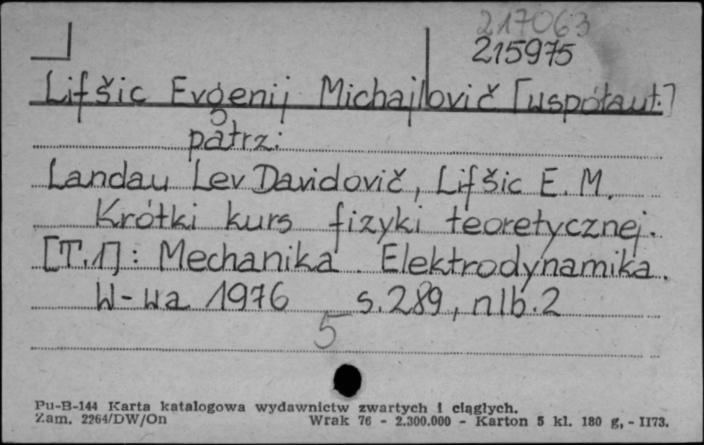 217063
215975
Lifšic Evgenij Michajlovič [współaut.]
patrz:
Landau Lev Davidovič, Lifšic E. M.
Krótki kurs fizyki teoretycznej.
[T.1]: Mechanika. Elektrodynamika.
W-wa 1976 s.289, nlb.2
5
Pu-B-144 Karta katalogowa wydawnictw zwartych i ciągłych.
Zam. 2264/DW/On Wrak 76 - 2.300.000 - Karton 5 kl. 180 g, - II73.